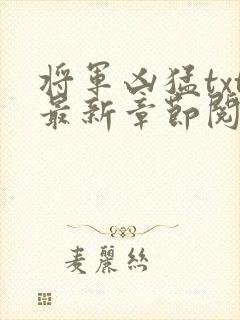 將軍凶猛txt
最新章節閱
麦麗絲